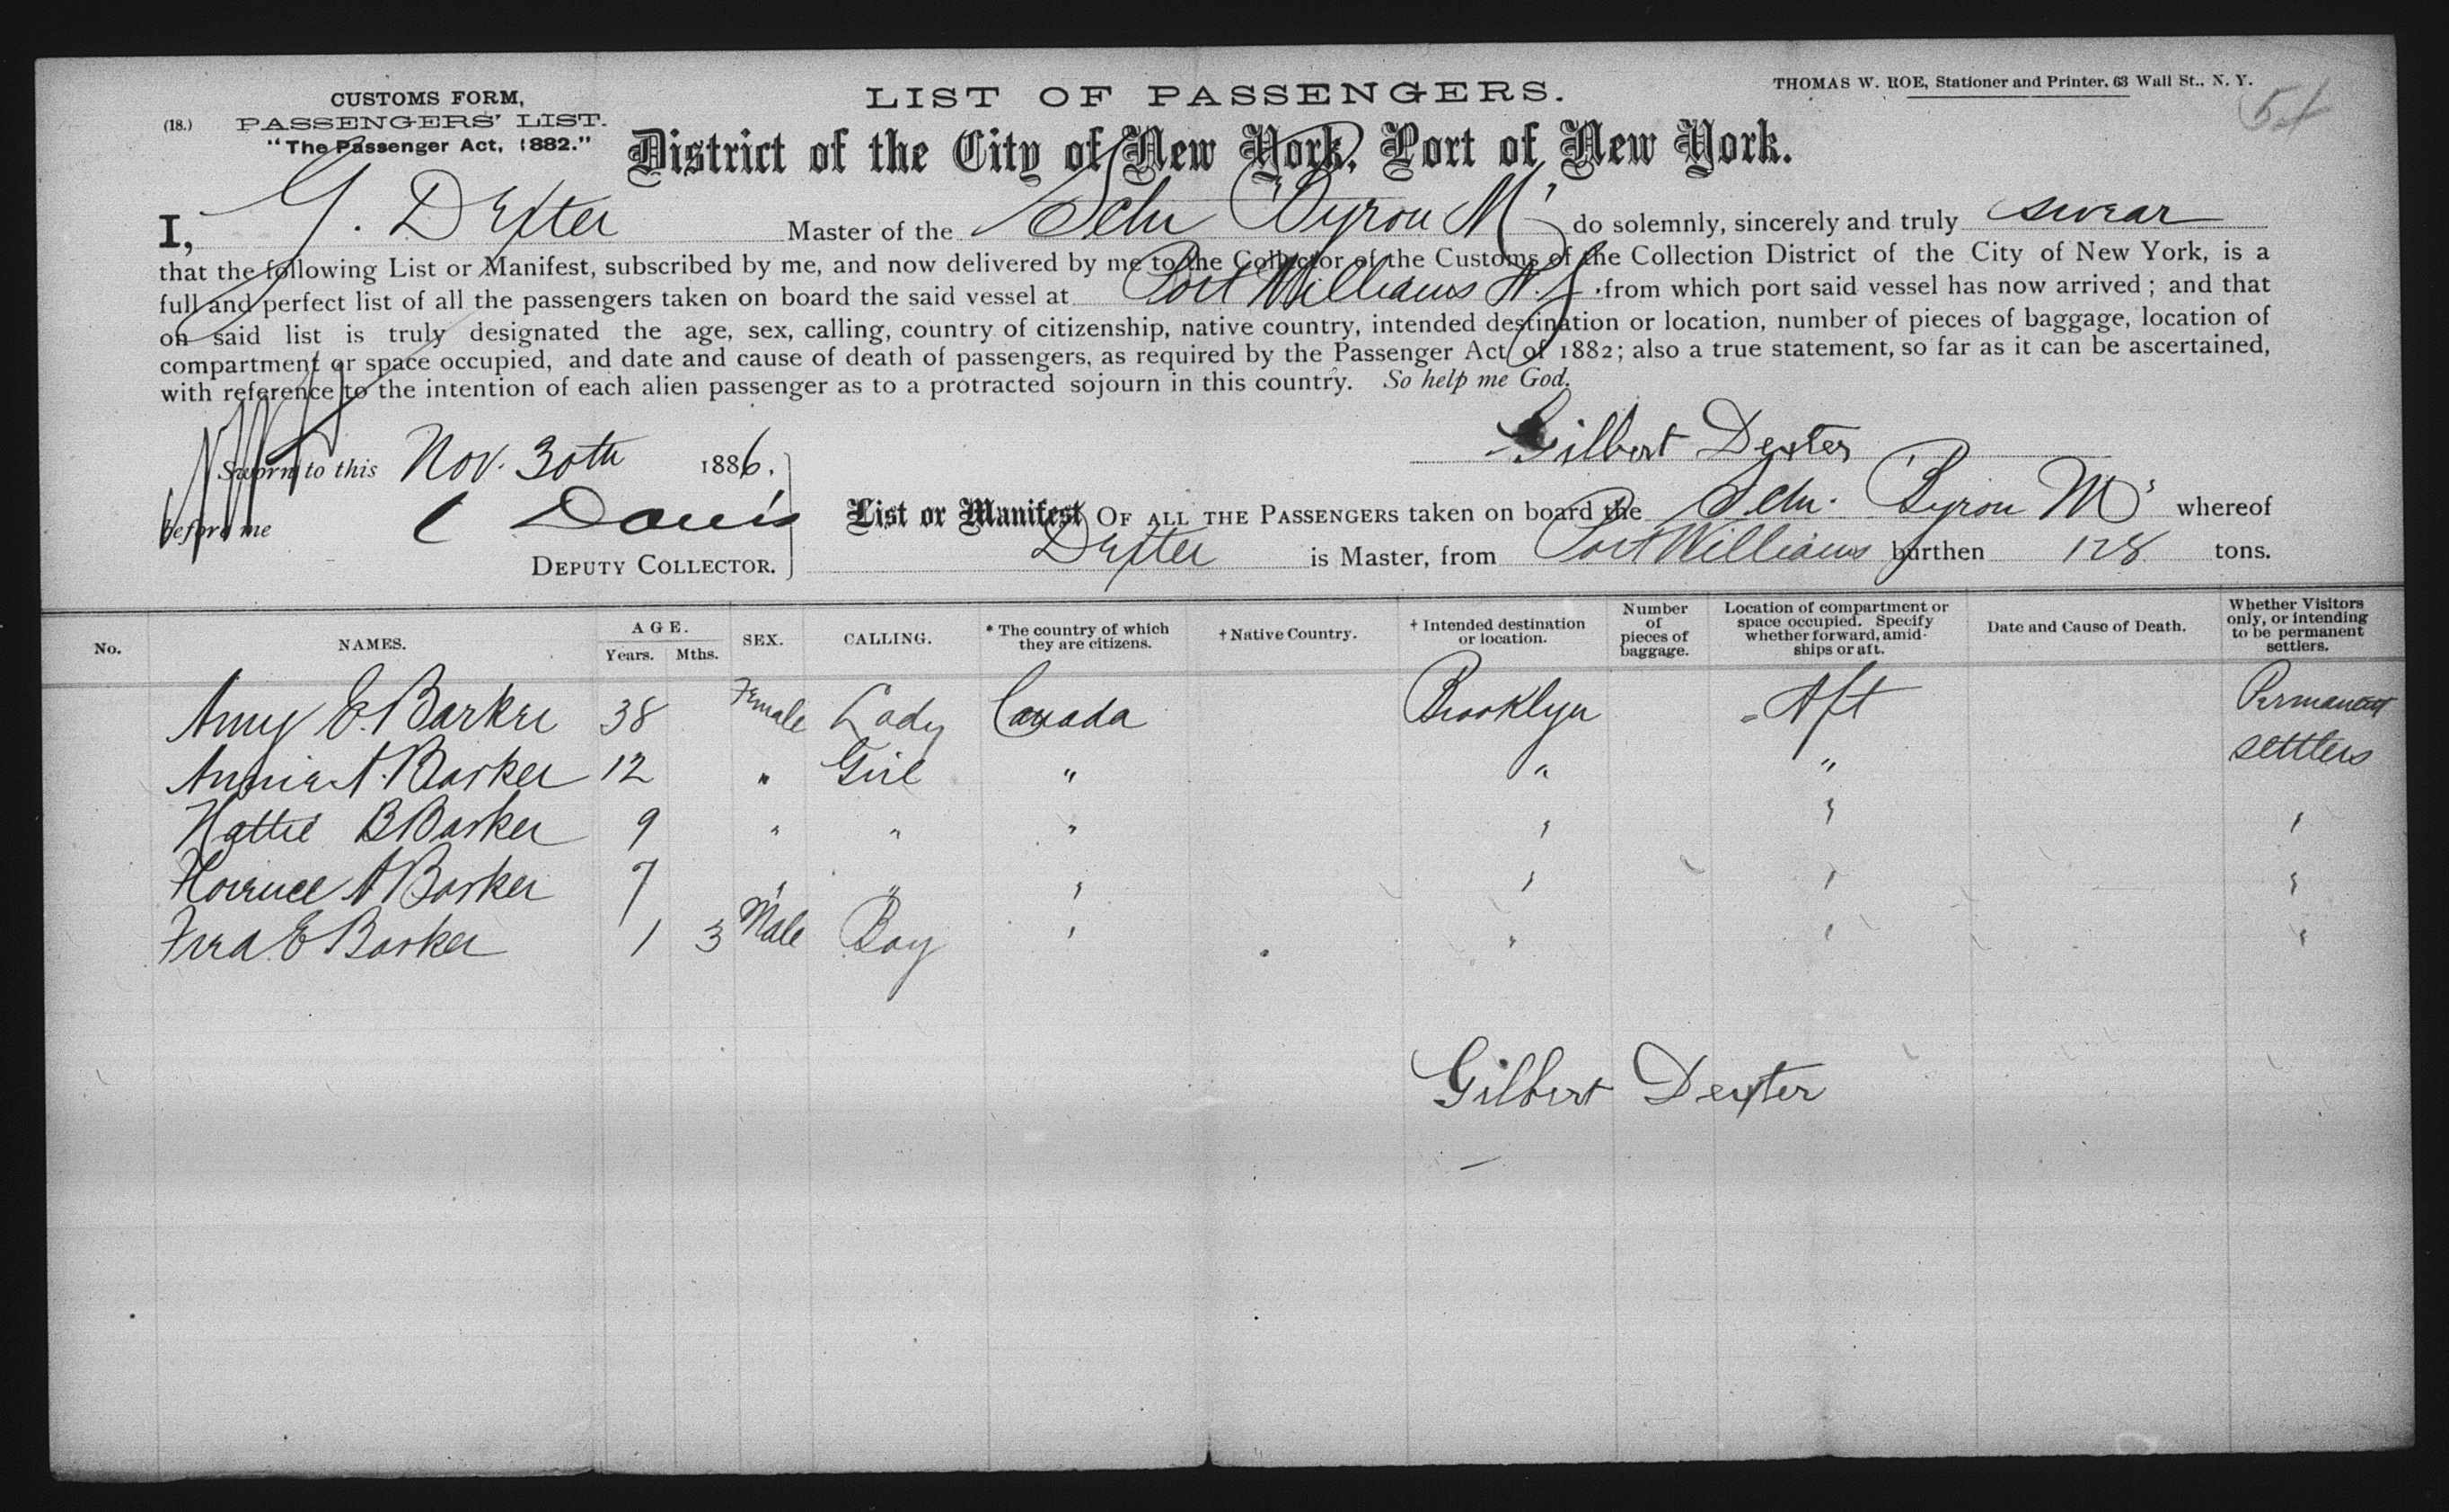 THOMAS W. ROE, Stationer and Printer, 63 Wall St., N. Y.
CUSTOMS FORM,
(18.) PASSENGERS' LIST.
"The Passenger Act, 1882."
LIST OF PASSENGERS.
District of the City of New York, Port of New York.
I, G. Dexter Master of the Schr "Byron M" do solemnly, sincerely and truly swear
that the following List or Manifest, subscribed by me, and now delivered by me to the Collector of the Customs of the Collection District of the City of New York, is a
full and perfect list of all the passengers taken on board the said vessel at Port Williams N.S. from which port said vessel has now arrived; and that
on said list is truly designated the age, sex, calling, country of citizenship, native country, intended destination or location, number of pieces of baggage, location of
compartment or space occupied, and date and cause of death of passengers, as required by the Passenger Act of 1882; also a true statement, so far as it can be ascertained,
with reference to the intention of each alien passenger as to a protracted sojourn in this country. So help me God.
Gilbert Dexter
Sworn to this Nov. 30th 1886.
before me C Davis
DEPUTY COLLECTOR.
List or Manifest OF ALL THE PASSENGERS taken on board the Schr. Byron M whereof
Dexter is Master, from Port Williams burthen 128 tons.
No. NAMES. AGE. Years. Mths. SEX. CALLING. * The country of which they are citizens. † Native Country. † Intended destination or location. Number of pieces of baggage. Location of compartment or space occupied. Specify whether forward, amidships or aft. Date and Cause of Death. Whether Visitors only, or intending to be permanent settlers.
Amy E. Barker 38 Female Lady Canada Brooklyn Aft Permanent settlers
Annie A. Barker 12 " Girl " " "
Hattie B Barker 9 " " " " " "
Florence A Barker 7 " " " " " "
Fred E Barker 1 3 Male Boy " " " "
Gilbert Dexter